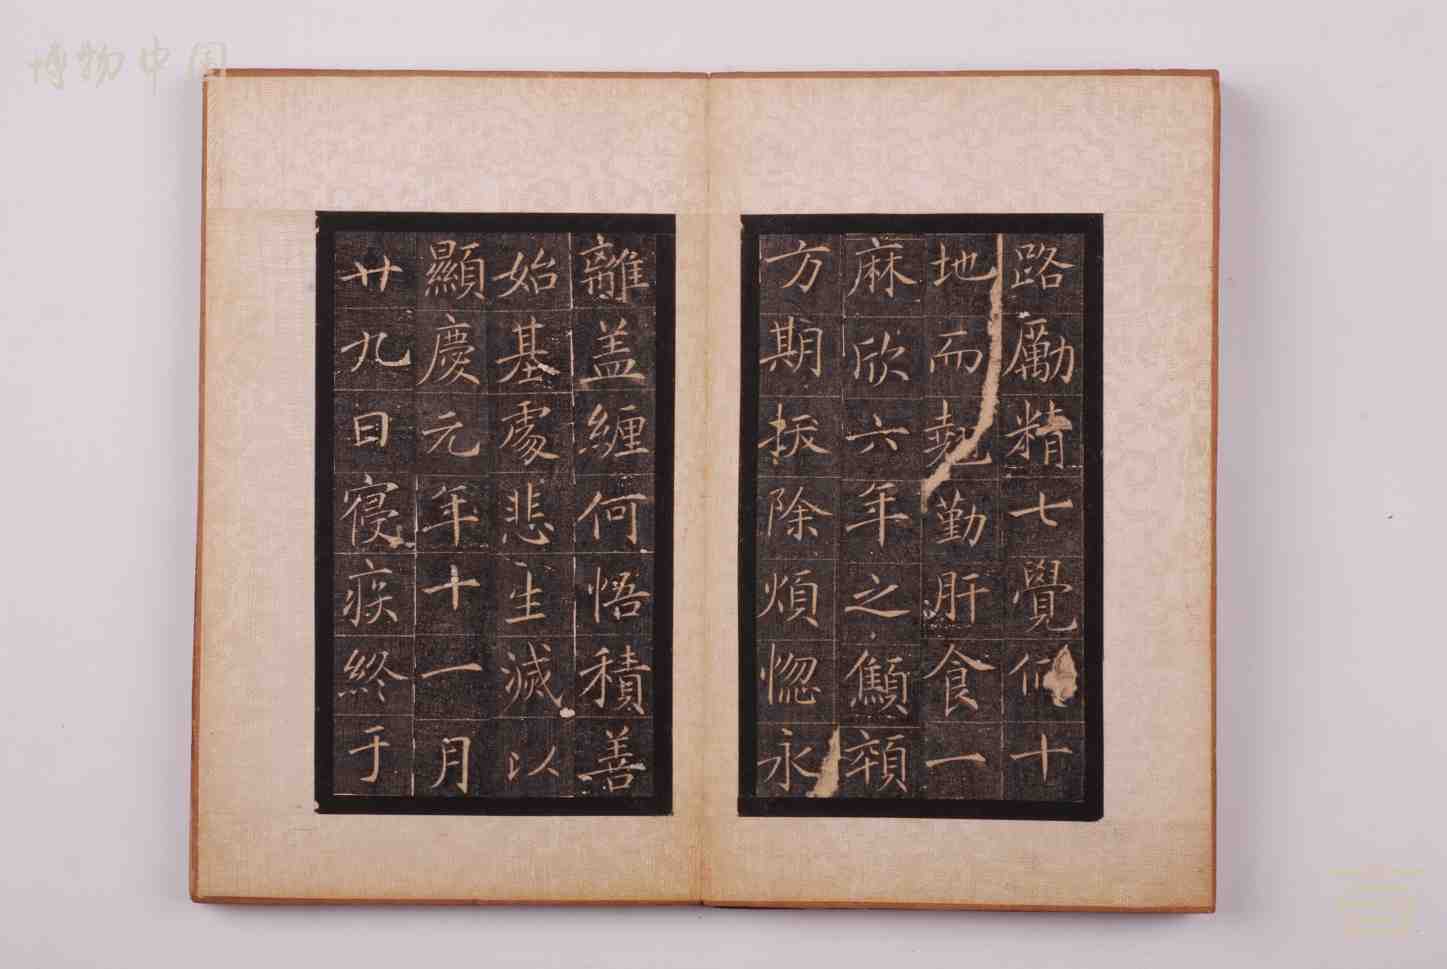 博物中国
路勵精七覺仰十
地而翹勤肝食一
麻欣六年之顦顇
方期拔除煩惱永
離盖纏何悟積善
始基處悲生滅以
顯慶元年十一月
廿九日寢疾終于